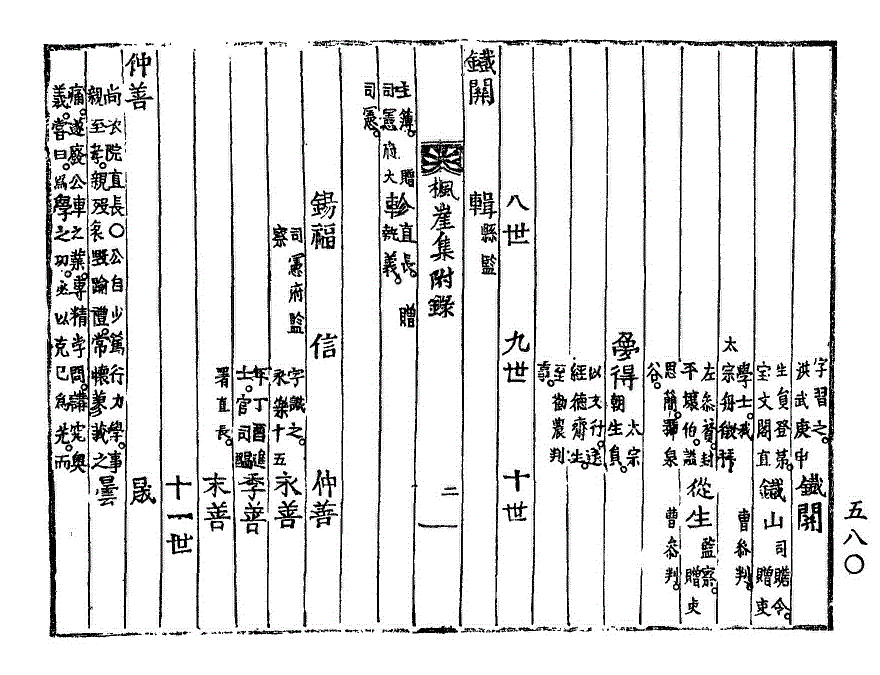 五八〇
字習之。
洪武庚申
生員登第。
寶文閣直
學士。我
太宗毋徵拜
左參贊。封
平壤伯。諡
思簡。
谷。
鐵關
鐵山 司贍令。
贈吏
曹參判。
從生 監察。
贈吏
曹參判。
夢得 太宗
朝生員。
以文行。
經德齋生。
至勸農判
事。
八世 九世 十世
鐵關 輯 縣監
楓崖集附錄 二
主簿。贈
司憲府
司憲。
錫福 司憲府監
察
信 字誠之。
永樂十五
年丁酉進
士。官司醞
署直長。
仲善
永善
季善
末善
十一世
仲善 晟
尚衣院直長〇公自少篤行力學。事
親至孝。親歿哀毀踰禮。常懷蓼莪之
痛。遂廢公車之業。專精學問。講究奧
義。嘗曰。爲學之功。必以克己爲先。而
曇